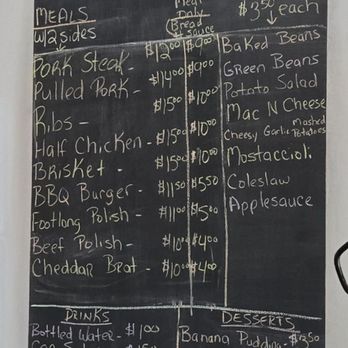 MEALS
w/2 sides
Meat
Only
Bread
+ sauce
$3.50 each
Pork Steak - $12.00 $9.00
Pulled Pork - $14.00 $9.00
Ribs - $15.00 $10.00
Half Chicken - $15.00 $10.00
Brisket - $15.00 $10.00
BBQ Burger - $11.50 $5.50
Footlong Polish - $11.00 $5.00
Beef Polish - $10.00 $4.00
Cheddar Brat - $10.00 $4.00
Baked Beans
Green Beans
Potato Salad
Mac N Cheese
Cheesy Garlic Mashed Potatoes
Mostaccioli
Coleslaw
Applesauce
DRINKS
Bottled Water - $1.00
DESSERTS
Banana Pudding -